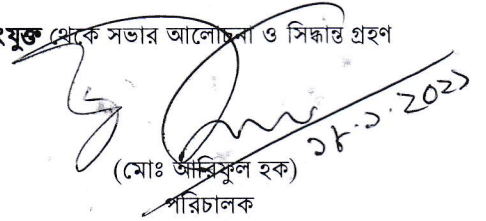 ংযুক্ত থেকে সভার আলোচনা ও সিদ্ধান্ত গ্রহণ
(মোঃ আরিফুল হক)
পরিচালক